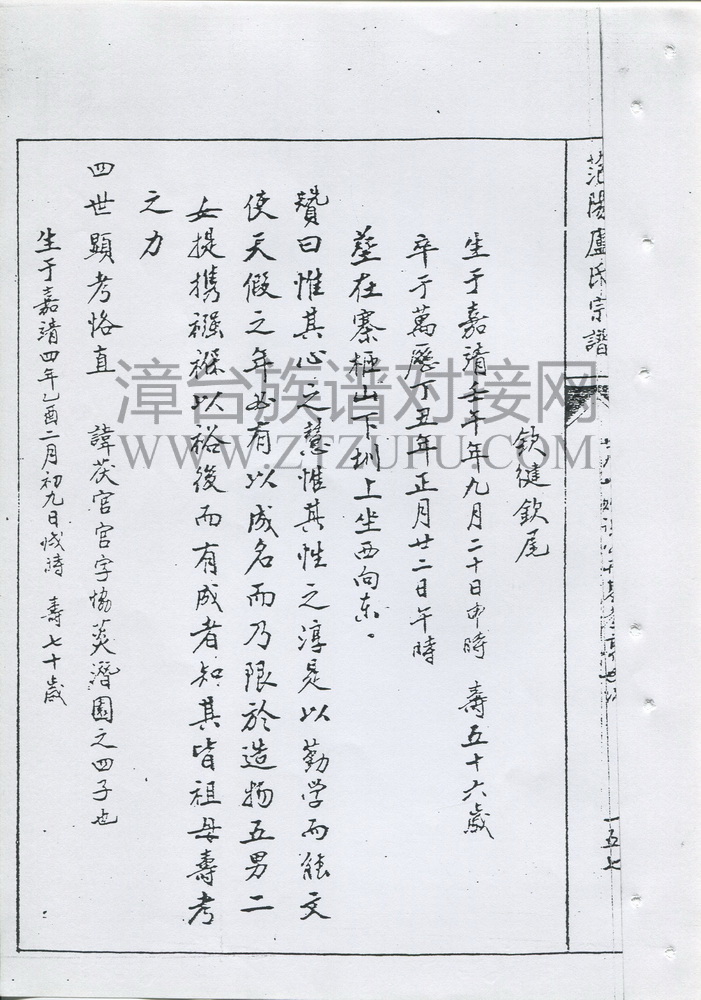 范陽盧氏宗譜
一五七
欽健欽尾
生于嘉靖壬午年九月二十日申時 壽五十六歲
卒于萬歷丁丑年正月廿二日午時
塋在寨柩山下圳上坐西向東。
贊曰惟其心之慧惟其性之淳是以勤学而能文
使天假之年必有以成名而乃限於造物五男二
女提携襁褓以裕後而有成者知其皆祖母壽考
之力
四世顯考恪直 諱茯官官字協英潛園之四子也
生于嘉靖四年乙酉二月初九日戌時 壽七十歲
漳台族谱对接网
WWW.ZTZUPU.COM